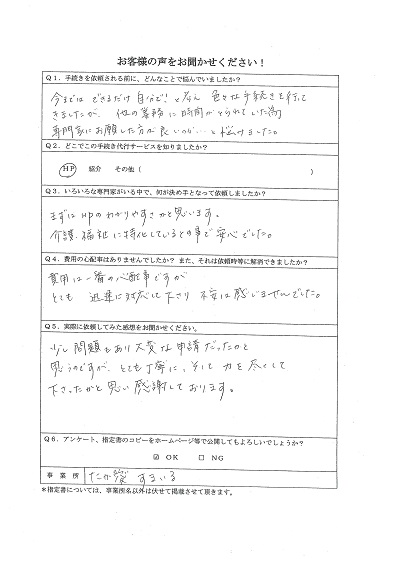 お客様の声をお聞かせください！
Q１．手続きを依頼される前に、どんなことで悩んでいましたか？
今までは できるだけ 自分で！と存ん 色々な手続きを行って
きましたが、他の業務に時間がとられていた為
専門家にお願した方が良いのか…と悩みました。
Q２．どこでこの手続き代行サービスを知りましたか？
HP 紹介 その他（ ）
Q３．いろいろな専門家がいる中で、何が決め手となって依頼しましたか？
まずは HPのわかりやすさかと思います。
介護・福祉に特化しているとの事で安心でした。
Q４．費用の心配事はありませんでしたか？ また、それは依頼時等に解消できましたか？
費用は一番の心配事ですが
とても 迅速に対応して下さり 不安は感じませんでした。
Q５．実際に依頼してみた感想をお聞かせください。
少し問題もあり大変な申請だったかと
思うのですが、とても丁寧に、そして 力を尽くして
下さったかと思い感謝しております。
Q６．アンケート、指定書のコピーをホームページ等で公開してもよろしいでしょうか？
☑ OK □ NG
事業所 すまいる
＊指定書については、事業所名以外は伏せて掲載させて頂きます。